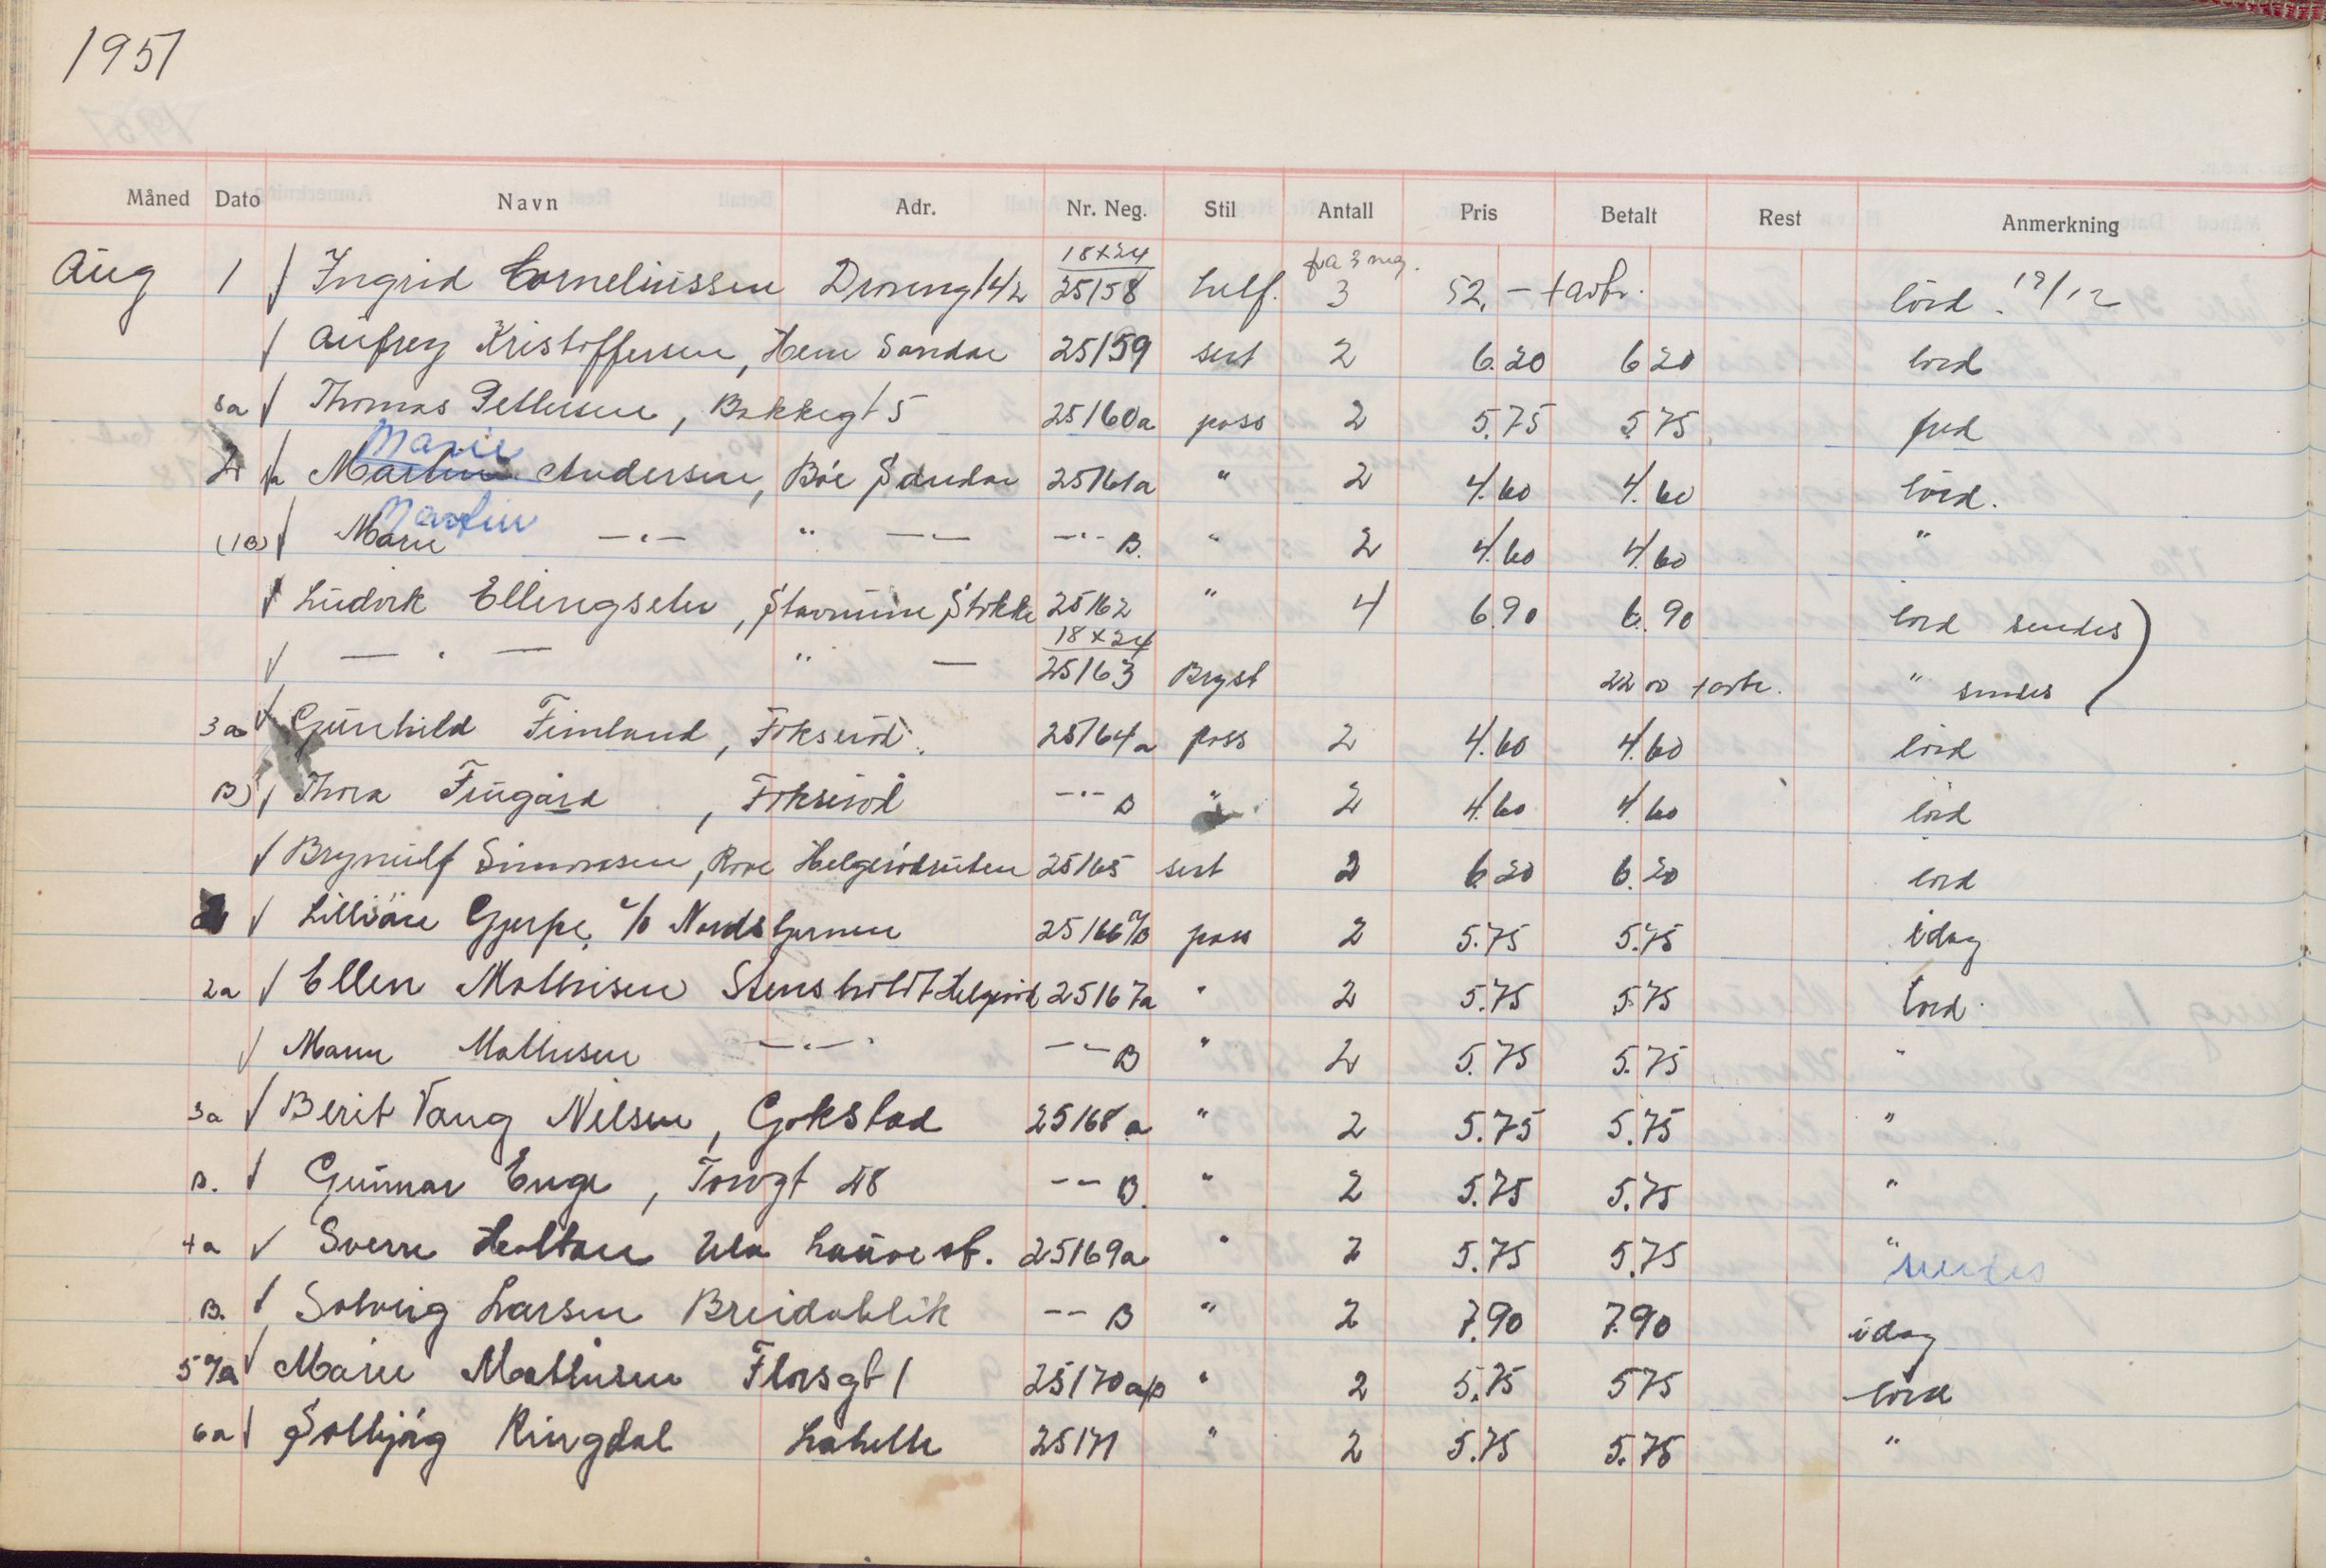 1951
Måned Dato Navn Adr. Nr. Neg. Stil Antall Pris Betalt Rest Anmerkning
18x24 fra 3 neg.
Aug 1 √ Ingrid Corneliussen Dronng 142 25158 3 52.- + avbr. lörd.
√ Aufrey Kristoffersen, Hem Sandar 25159 sert 2 6.20 6 20 lörd
√ Thomas Pettersen, Bakkegt 5 25160a pass 2 5.75 5.75 fred
Marie
2 √a Martin Andersen, Böe Sandar 25161a " 2 4.60 4.60 lörd.
Martin
(1B) √ Marie —"— " —"— —"— B. " 2 4.60 4.60 "
√ Ludvik Ellingsen, Stavnum Stokke 25162 " 4 6.90 6.90 lörd sendes
18x24
√ — " — " — 25163 Bryst 22 00 + avbr. " sendes
3a √ Gunhild Fimland, Fokseröd. 25164a pass 2 4.60 4.60 lörd
B) √ Thora Fugård, Fokseröd —"— B " 2 4.60 4.60 lörd
√ Brynulf Simonsen, Rove Helgerödruten 25165 sert 2 6.20 6.20 lörd
√ Gjerpe, c/o Nordstjernen 25166 a/B pass 2 5.75 5.75 idag
2a √ Ellen Mathisen Stensholt Helgeröd 25167a " 2 5.75 5.75 lörd.
√ Mathisen —"—" —"— B " 2 5.75 5.75 "
3a √ Berit Vang Nilsen, Gokstad 25168a " 2 5.75 5.75 "
B. √ Gunnar Enge, Torvgt 48 —"— B. " 2 5.75 5.75 "
4a √ Sverre Holtan Ula 25169a " 2 5.75 5.75 " sendes
B. √ Solveig Larsen Breidablik —"— B " 2 7.90 7.90 idag
√ Marie Mathisen Florsgt 1 25170 a/B " 2 5.75 5 75 lörd
6a √ Solbjörg Ringdal Lahelle 25171 " 2 5.75 5.75 "